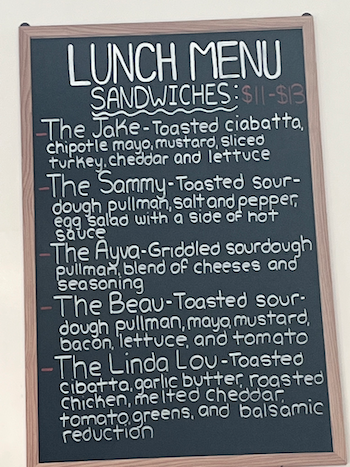 LUNCH MENU
SANDWICHES: $11-$13
-The Jake-Toasted ciabatta,
chipotle mayo, mustard, sliced
turkey, cheddar and lettuce
-The Sammy-Toasted sour-
dough pullman, salt and pepper,
egg salad with a side of hot
sauce
-The Ayva-Griddled sourdough
pullman, blend of cheeses and
seasoning
-The Beau-Toasted sour-
dough pullman, mayo, mustard,
bacon, lettuce, and tomato
-The Linda Lou-Toasted
cibatta, garlic butter, roasted
chicken, melted cheddar,
tomato, greens, and balsamic
reduction